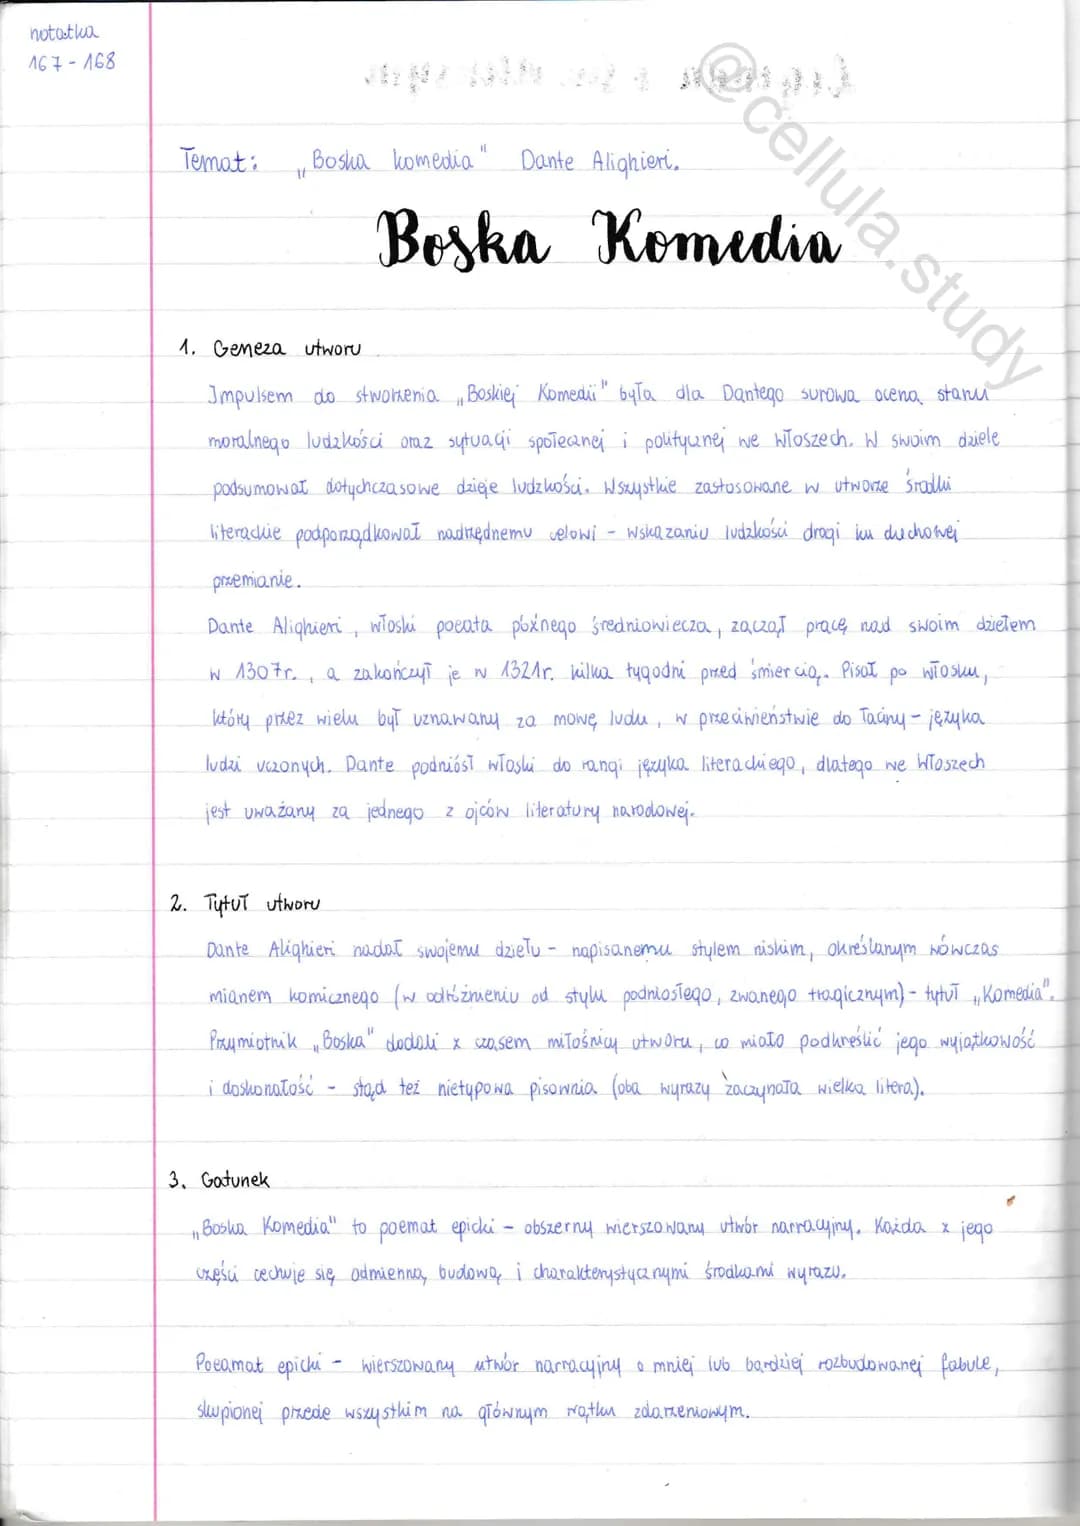 notatka
167 - 168
@cellula.study
Temat: „Boska komedia" Dante Alighieri.
Boska Komedia
1. Geneza utworu
Impulsem do stworzenia „Boskiej Komedii" była dla Dantego surowa ocena stanu
moralnego ludzkości oraz sytuacji społecznej i politycznej we Włoszech. W swoim dziele
podsumował dotychczasowe dzieje ludzkości. Wszystkie zastosowane w utworze środki
literackie podporządkował nadrzędnemu celowi - wskazaniu ludzkości drogi ku duchowej
przemianie.
Dante Alighieri, włoski poeata późnego średniowiecza, zaczął pracę nad swoim dziełem
w 1307r., a zakończył je w 1321r. kilka tygodni przed śmiercią. Pisał po włosku,
który przez wielu był uznawany za mowę ludu, w przeciwieństwie do łaciny - języka
ludzi uczonych. Dante podniósł włoski do rangi języka literackiego, dlatego we Włoszech
jest uważany za jednego z ojców literatury narodowej.
2. Tytuł utworu
Dante Alighieri nadał swojemu dziełu - napisanemu stylem niskim, określanym wówczas
mianem komicznego (w odróżnieniu od stylu podniosłego, zwanego tragicznym) - tytuł „Komedia".
Przymiotnik „Boska" dodali z czasem miłośnicy utworu, co miało podkreślić jego wyjątkowość
i doskonałość - stąd też nietypowa pisownia (oba wyrazy zaczynała wielka litera).
3. Gatunek
„Boska Komedia" to poemat epicki - obszerny wierszowany utwór narracyjny. Każda z jego
części cechuje się odmienną budową i charakterystycznymi środkami wyrazu.
Poeamat epicki - wierszowany utwór narracyjny o mniej lub bardziej rozbudowanej fabule,
skupionej przede wszystkim na głównym wątku zdarzeniowym.